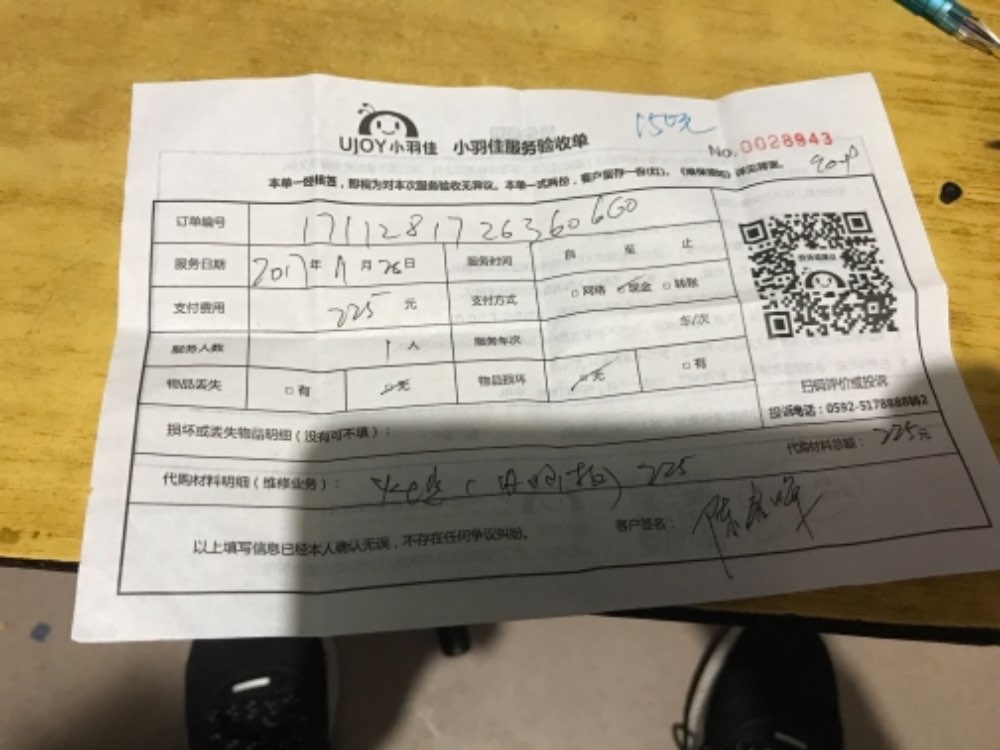 UJOY小羽佳 小羽佳服务验收单 150元
No. 0028943
本单一经核签，即视为对本次服务验收无异议。本单一式两份，客户留存一份(红)。
订单编号 171128172636060
服务日期 2017年11月26日 服务时间 自 至 止
支付费用 225元 支付方式 □网络 □现金 □转账
服务人数 1人 服务车次 车/次
物品丢失 □有 □无 物品损坏 □无 □有
扫码评价或投诉
投诉电话：0592-5178888
损坏或丢失物品明细（没有可不填）：
代购材料总额：225元
代购材料明细（维修业务）： 225
以上填写信息已经本人确认无误，不存在任何争议纠纷。 客户签名：